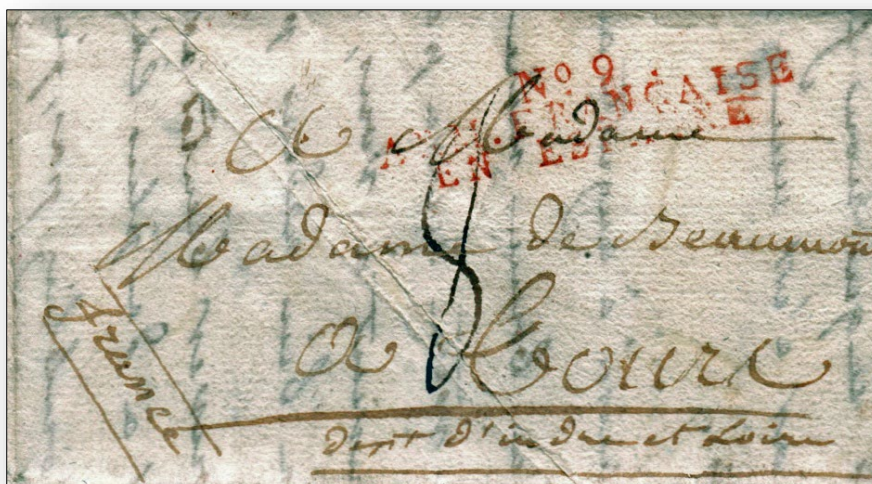 No 9
ARM. FRANÇAISE
EN ESPAGNE
A Madame
Madame de Beaumon
8
A Tours
france
dept d'indre et Loire